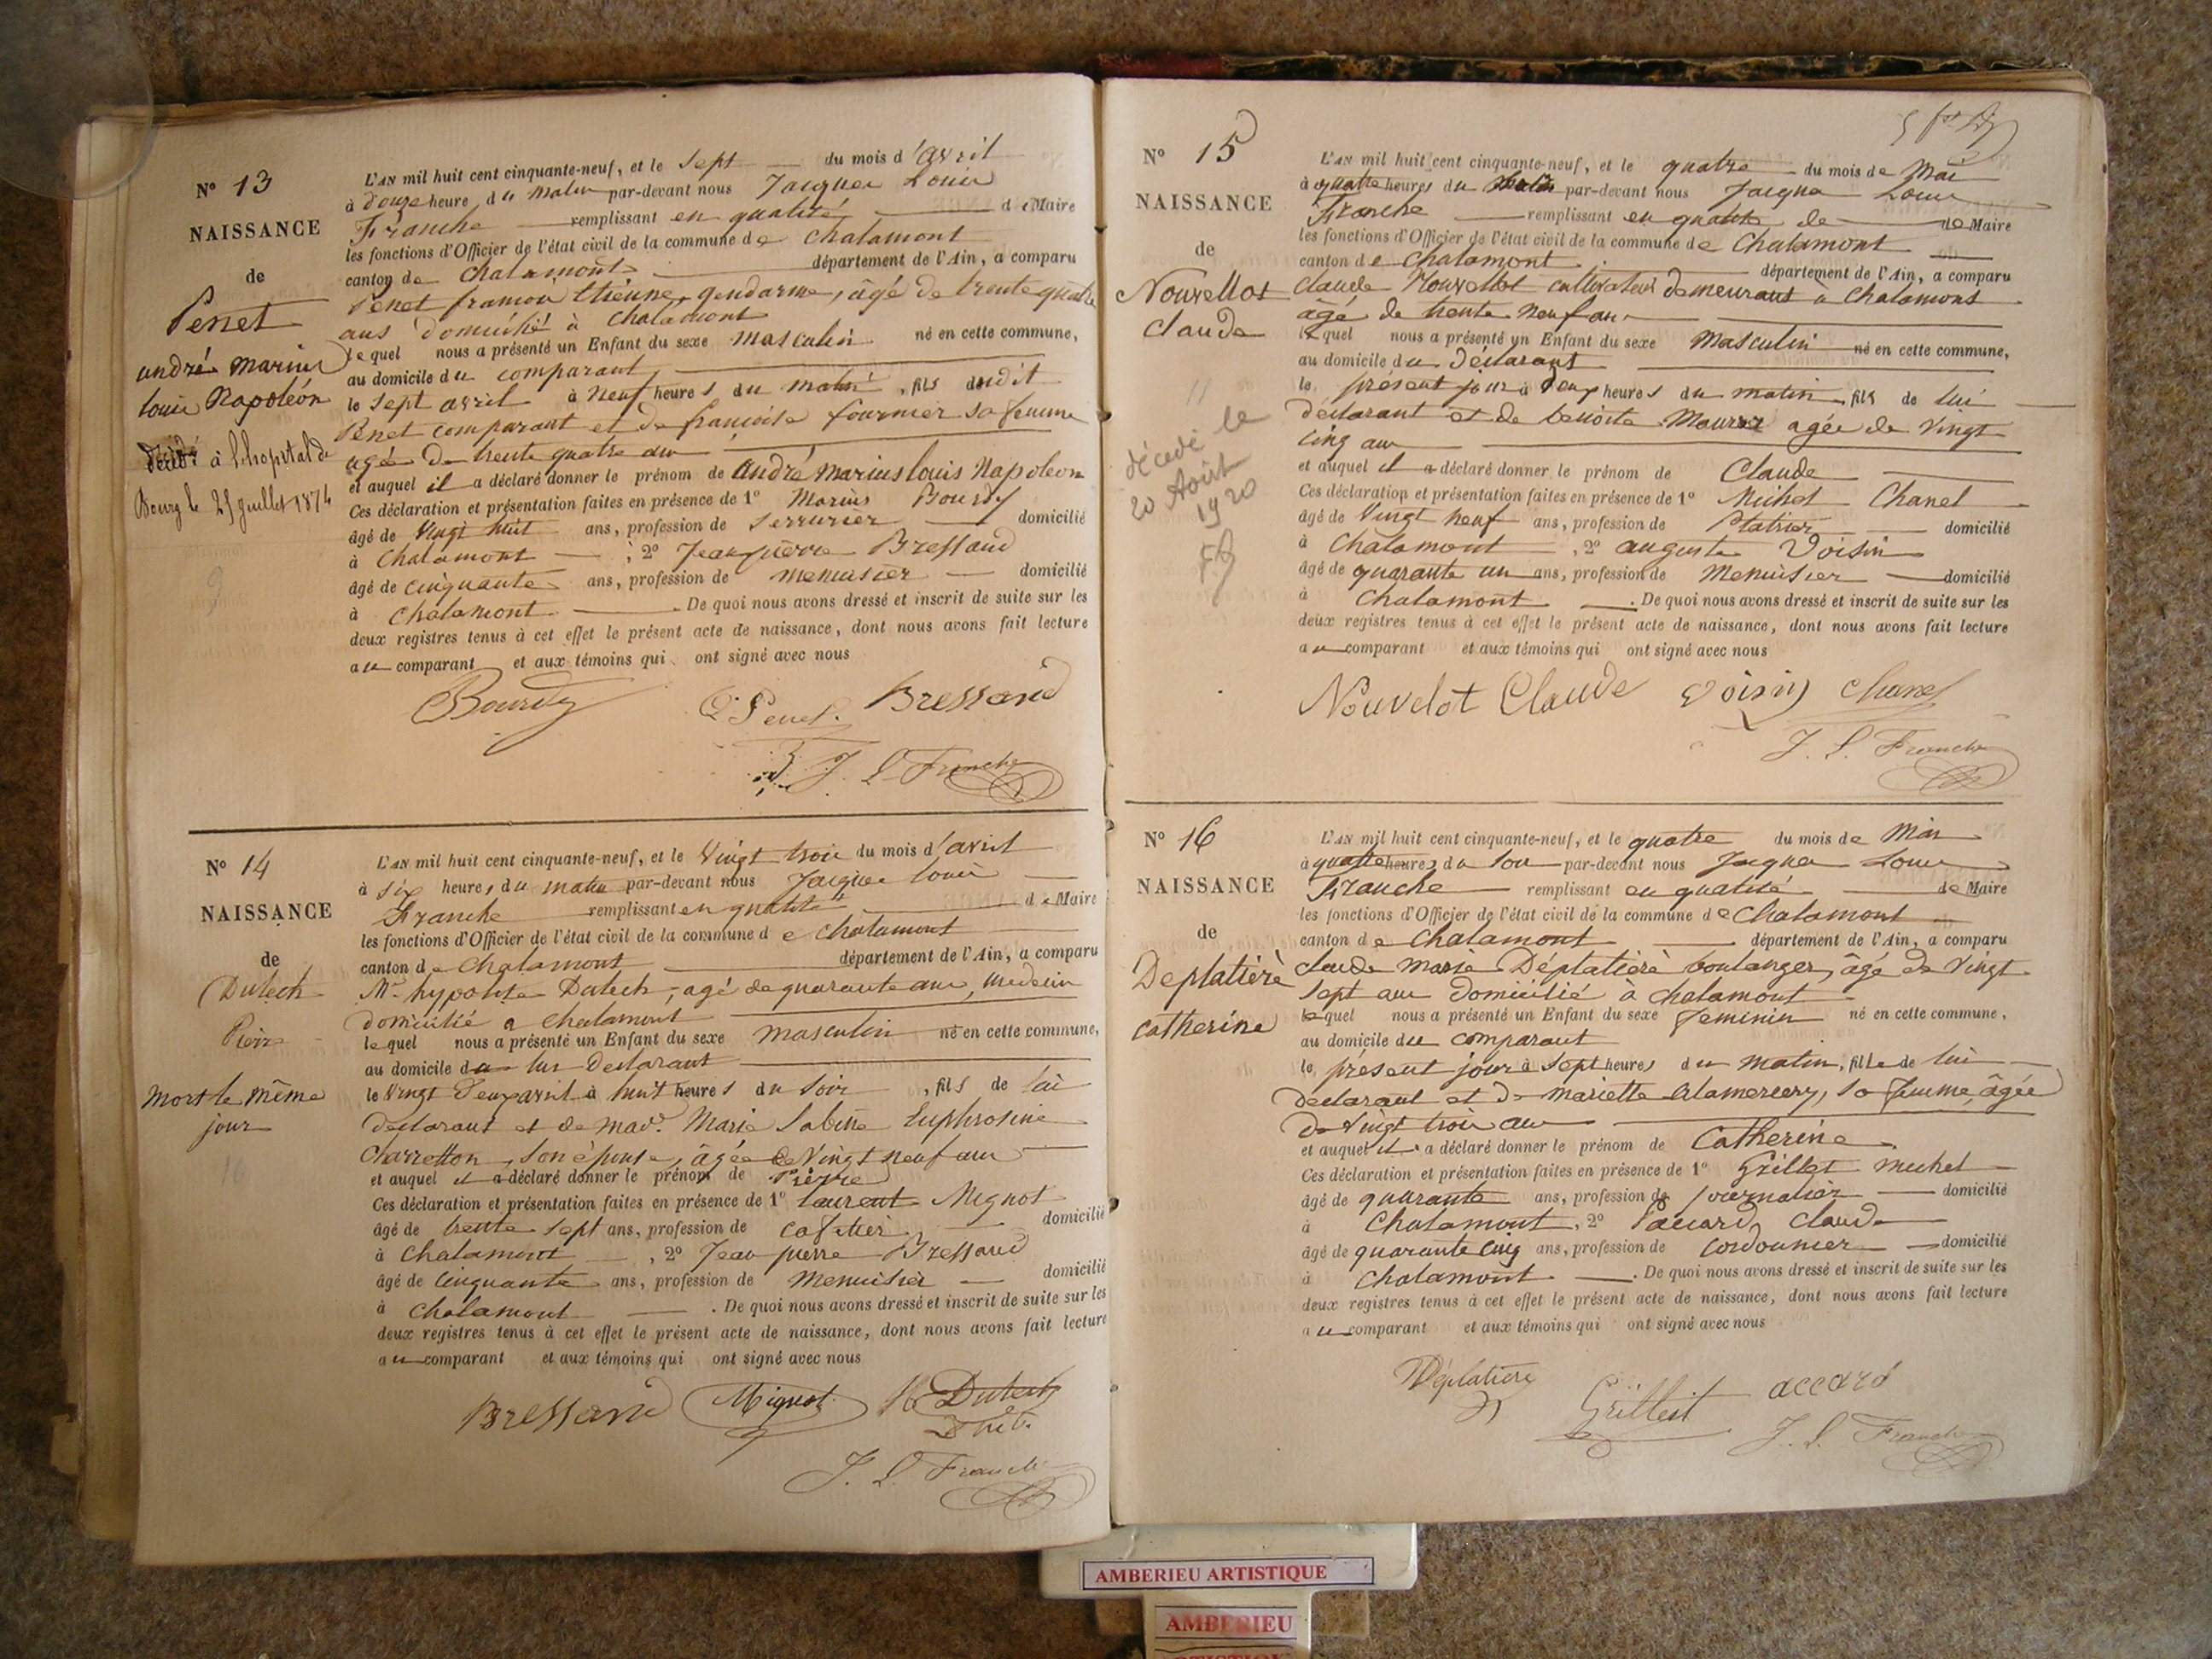 N° 13
NAISSANCE
de
Penet
andré Marius
louis Napoléon
décédé à l'hopital de
Bourg le 25 juillet 1874
L'AN mil huit cent cinquante-neuf, et le sept du mois d'avril
à douze heure du matin par-devant nous Jacques Louis
Franche remplissant en qualité de Maire
les fonctions d'Officier de l'état civil de la commune de Chalamont
canton de Chalamont département de l'Ain, a comparu
Penet francois Etienne, gendarme, âgé de trente quatre
ans domicilié à Chalamont
lequel nous a présenté un Enfant du sexe masculin né en cette commune,
au domicile du comparant
le sept avril à neuf heures du matin, fils dudit
Penet comparant et de francoise fournier sa femme
agée de trente quatre ans
et auquel il a déclaré donner le prénom de andré marius louis Napoleon
Ces déclaration et présentation faites en présence de 1° Marius Bourdy
âgé de Vingt huit ans, profession de serrurier domicilié
à Chalamont ; 2° Jean pierre Bressand
âgé de cinquante ans, profession de menuisier domicilié
à Chalamont. De quoi nous avons dressé et inscrit de suite sur les
deux registres tenus à cet effet le présent acte de naissance, dont nous avons fait lecture
au comparant et aux témoins qui ont signé avec nous
Bourdy
Penet Bressand
J. L. Franche
N° 14
NAISSANCE
de
Dutech
Pierre
Mort le même
jour
L'AN mil huit cent cinquante-neuf, et le Vingt trois du mois d'avril
à six heures du matin par-devant nous Jacques louis
Franche remplissant en qualité de Maire
les fonctions d'Officier de l'état civil de la commune de Chalamont
canton de Chalamont département de l'Ain, a comparu
Mr hypolite Dutech, agé de quarante ans, Medecin
domicilié a Chalamont
lequel nous a présenté un Enfant du sexe masculin né en cette commune,
au domicile du lui Declarant
le Vingt deux avril à huit heures du soir, fils de lui
declarant et de mad. Marie Sabine Euphrosine
Charretton, son épouse, âgée de Vingt neuf ans
et auquel il a déclaré donner le prénom de Pierre
Ces déclaration et présentation faites en présence de 1° laurent Mignot
âgé de trente sept ans, profession de cafetier domicilié
à Chalamont, 2° Jean pierre Bressand
âgé de cinquante ans, profession de menuisier domicilié
à Chalamont. De quoi nous avons dressé et inscrit de suite sur les
deux registres tenus à cet effet le présent acte de naissance, dont nous avons fait lecture
au comparant et aux témoins qui ont signé avec nous
Bressand Mignot H Dutech
J. L. Franche
N° 15
NAISSANCE
de
Nouvellot
claude
décédé le
20 Août
1920
L'AN mil huit cent cinquante-neuf, et le quatre du mois de Mai
à quatre heures du par-devant nous Jacques Louis
Franche remplissant en qualité de de Maire
les fonctions d'Officier de l'état civil de la commune de Chalamont
canton de Chalamont département de l'Ain, a comparu
Claude Nouvellot cultivateur demeurant à Chalamont
âgé de trente neuf ans
lequel nous a présenté un Enfant du sexe Masculin né en cette commune,
au domicile du déclarant
le présent jour à deux heures du matin, fils de lui
déclarant et de benoite Maurer agée de vingt
cinq ans
et auquel il a déclaré donner le prénom de Claude
Ces déclaration et présentation faites en présence de 1° Michel Chanel
âgé de Vingt neuf ans, profession de Platrier domicilié
à Chalamont, 2° auguste Voisin
âgé de quarante un ans, profession de Menuisier domicilié
à Chalamont. De quoi nous avons dressé et inscrit de suite sur les
deux registres tenus à cet effet le présent acte de naissance, dont nous avons fait lecture
au comparant et aux témoins qui ont signé avec nous
Nouvelot Claude Voisin Chanel
J. L. Franche
N° 16
NAISSANCE
de
Deplatière
catherine
L'AN mil huit cent cinquante-neuf, et le quatre du mois de Mai
à quatre heures du soir par-devant nous Jacques Louis
Franche remplissant en qualité de Maire
les fonctions d'Officier de l'état civil de la commune de Chalamont
canton de Chalamont département de l'Ain, a comparu
claude marie Déplatière boulanger, âgé de Vingt
sept ans domicilié à Chalamont
lequel nous a présenté un Enfant du sexe feminin né en cette commune,
au domicile du comparant
le présent jour à sept heures du matin, fille de lui
déclarant et de mariette Alamercery, sa femme, âgée
de Vingt trois ans
et auquel il a déclaré donner le prénom de Catherine
Ces déclaration et présentation faites en présence de 1° Grillet michel
âgé de quarante ans, profession de journalier domicilié
à Chalamont, 2° Paccard, Claude
âgé de quarante cinq ans, profession de cordonnier domicilié
à Chalamont. De quoi nous avons dressé et inscrit de suite sur les
deux registres tenus à cet effet le présent acte de naissance, dont nous avons fait lecture
au comparant et aux témoins qui ont signé avec nous
Déplatière
Grillet accard
J. L. Franche
AMBERIEU ARTISTIQUE
AMBERIEU